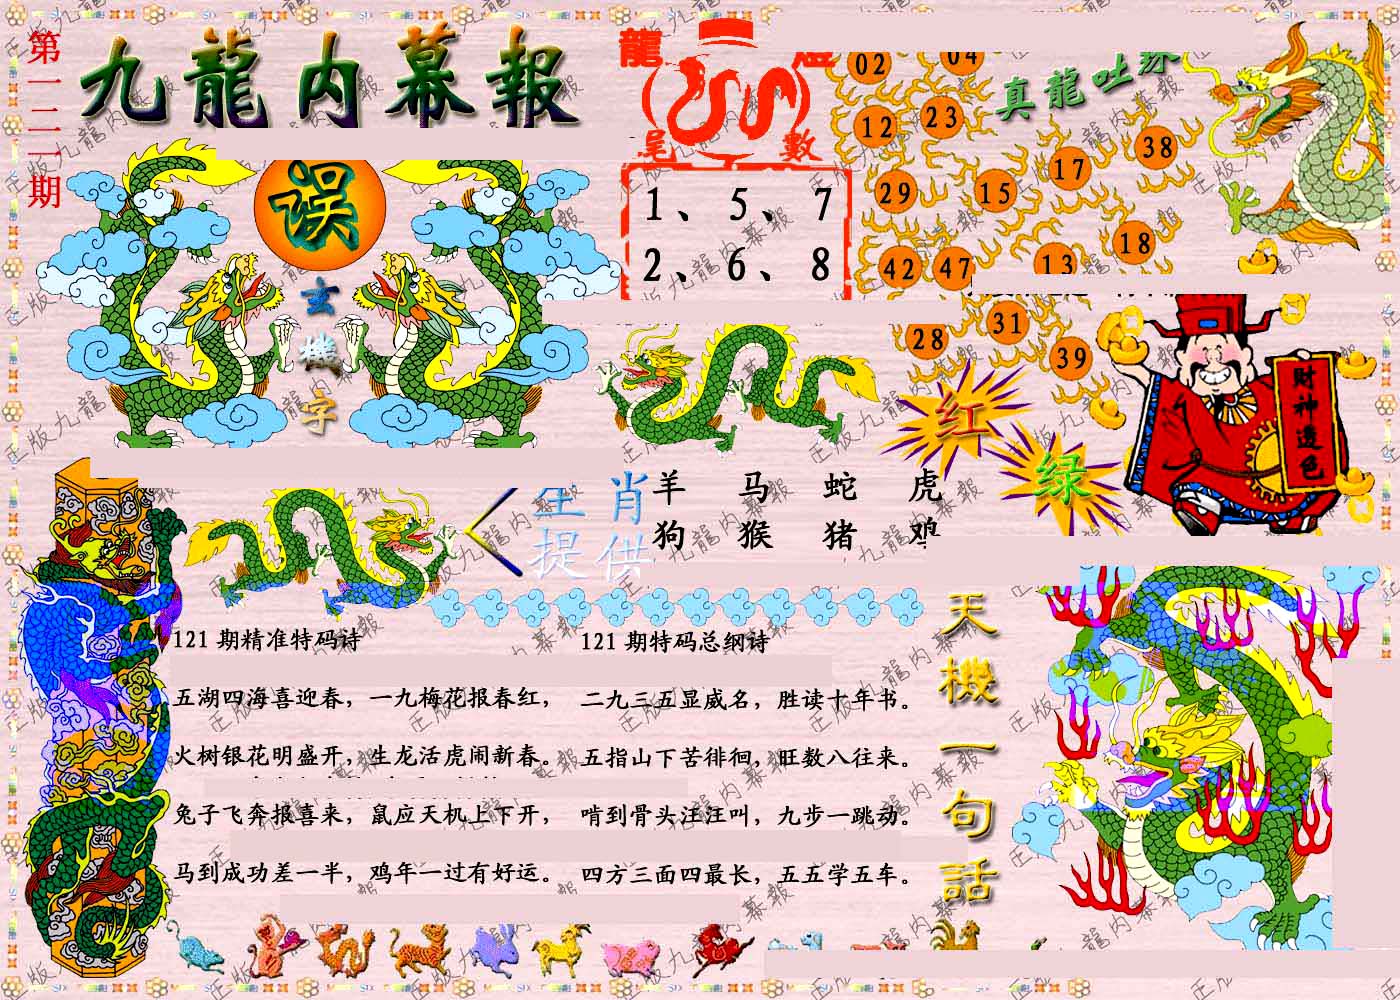 第一二一期
九龍内幕報
误
玄機字
龍
尾數
1、5、7
2、6、8
真龍吐珠
02 04
12 23
29 15 17 38
42 47 13 18
28 31 39
红
绿
财神透色
生肖
提供
羊 马 蛇 虎
狗 猴 猪 鸡
121 期精准特码诗
五湖四海喜迎春，一九梅花报春红，
火树银花明盛开，生龙活虎闹新春。
兔子飞奔报喜来，鼠应天机上下开，
马到成功差一半，鸡年一过有好运。
121 期特码总纲诗
二九三五显威名，胜读十年书。
五指山下苦徘徊，旺数八往来。
啃到骨头汪汪叫，九步一跳动。
四方三面四最长，五五学五车。
天機一句話
正版九龍内幕報